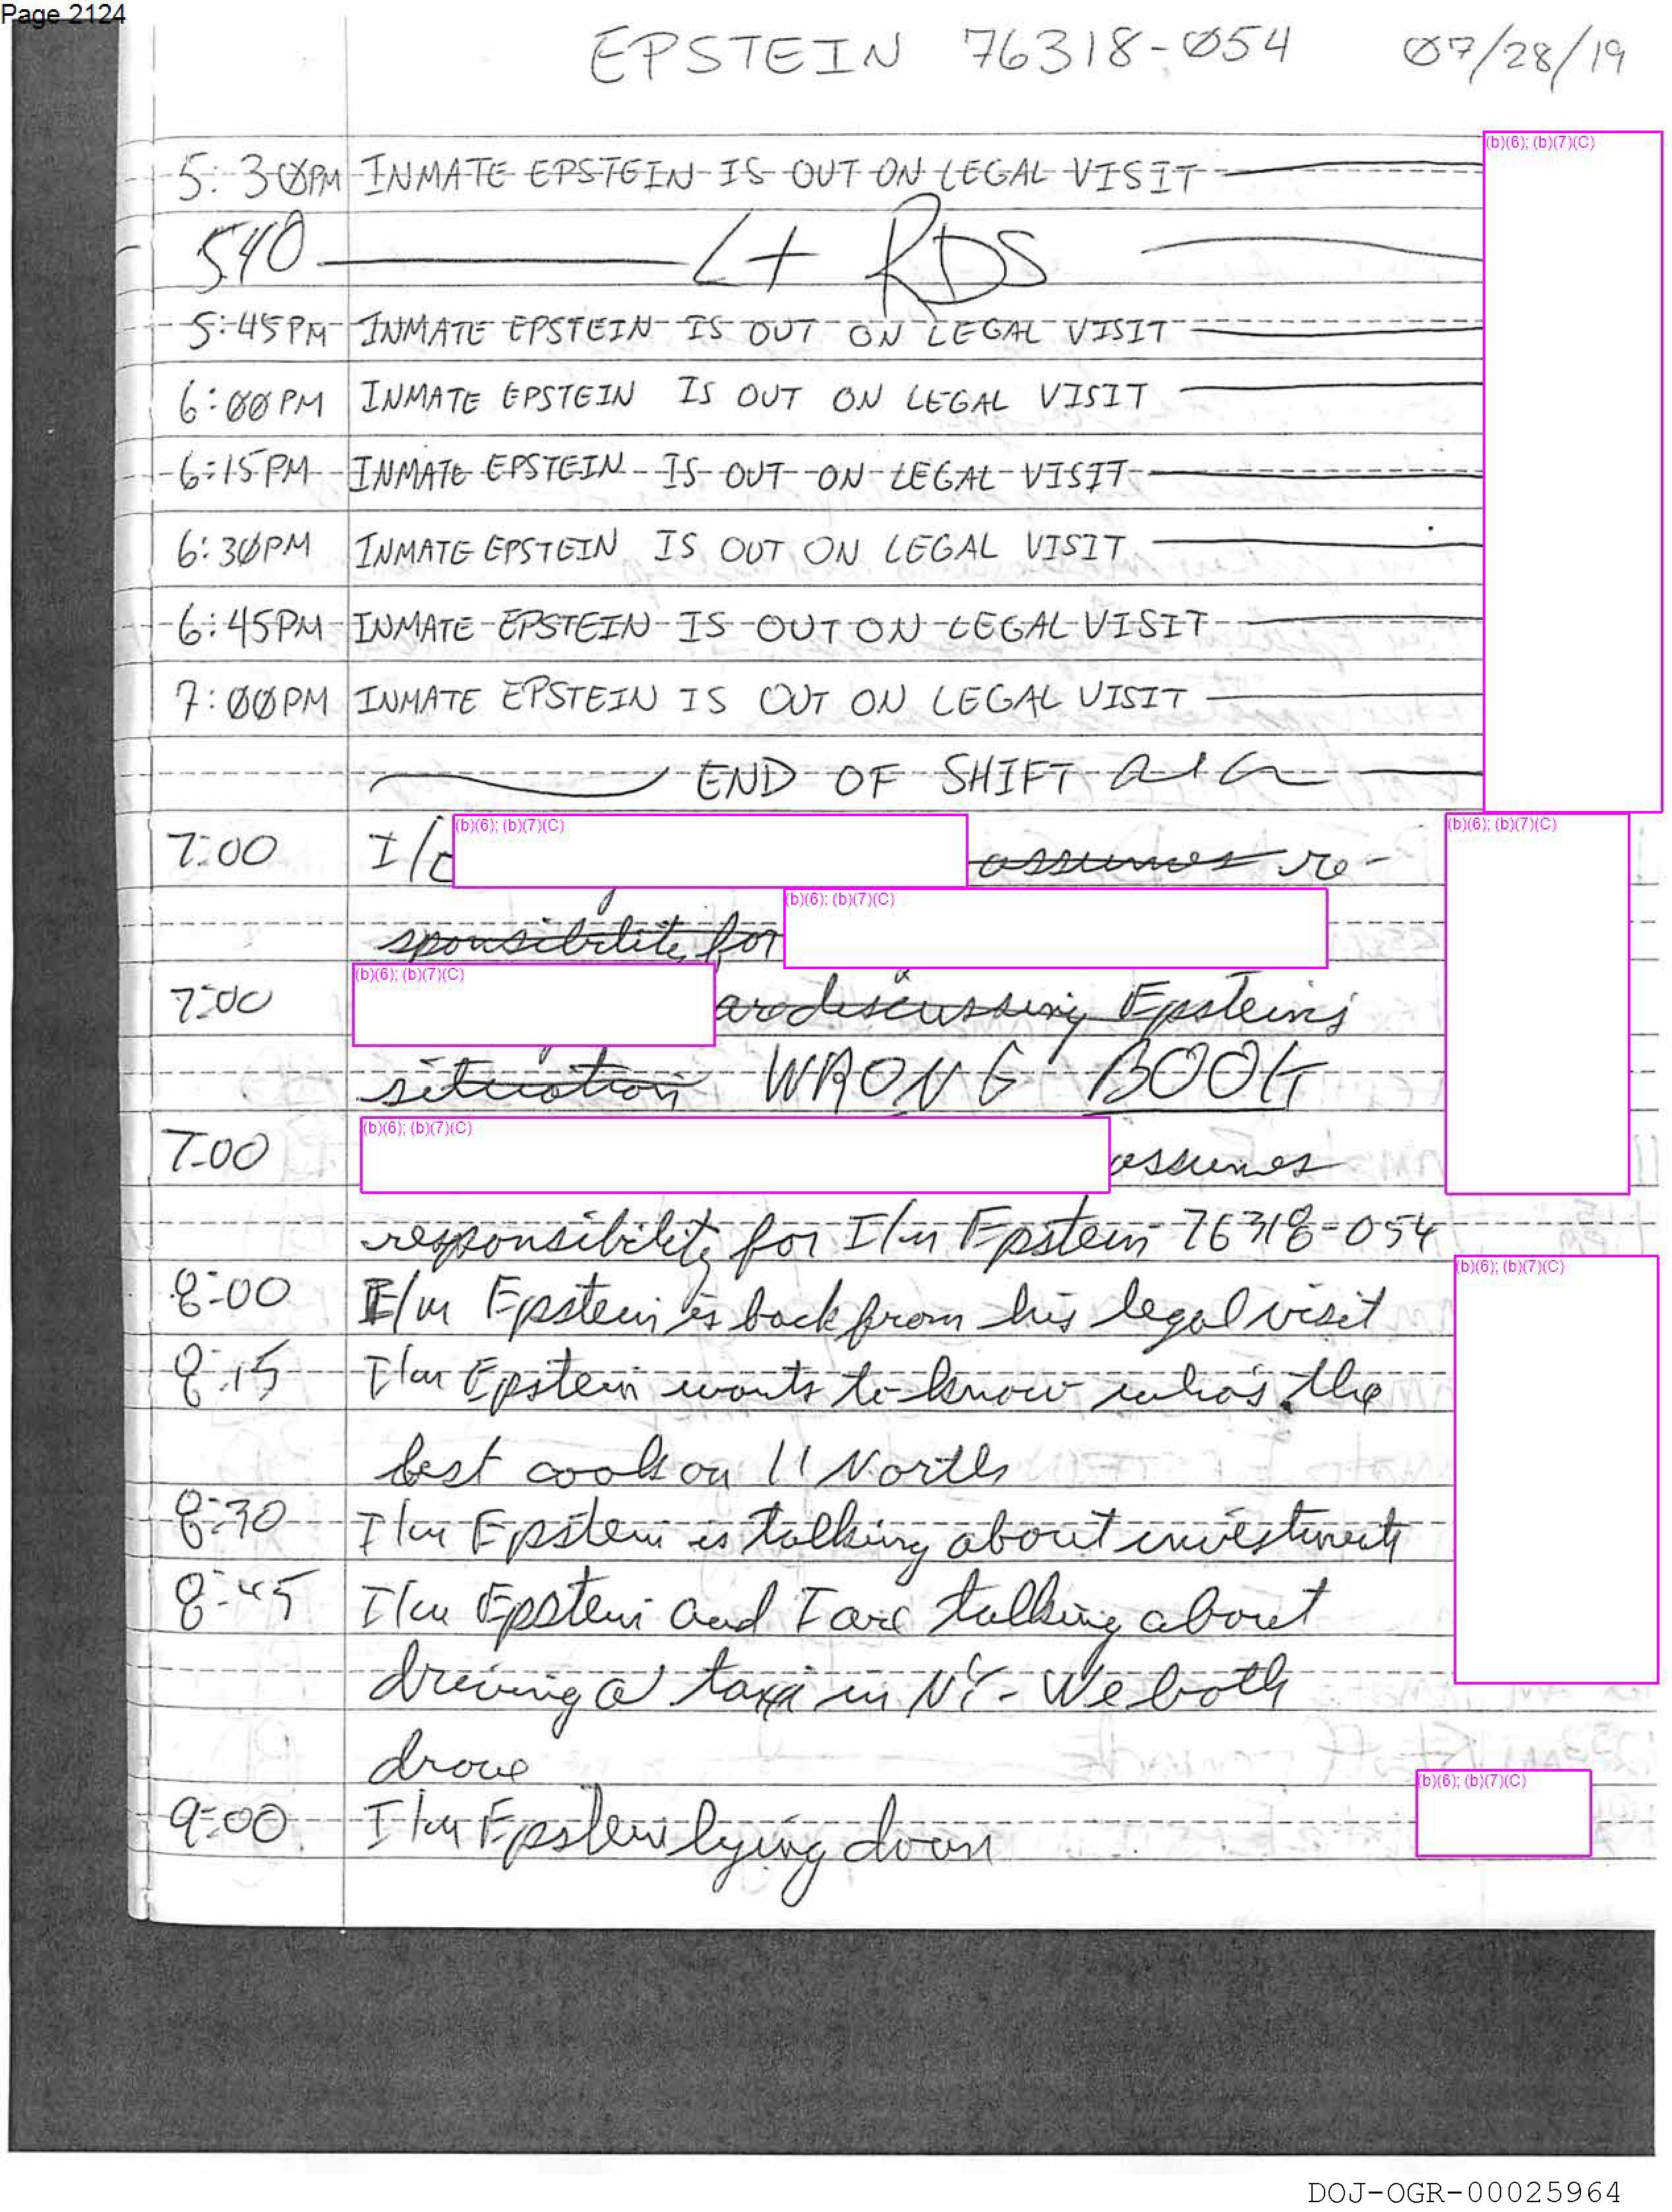 Page 2124
EPSTEIN 76318-054 07/28/19
(b)(6); (b)(7)(C)
5:30PM INMATE EPSTEIN IS OUT ON LEGAL VISIT
540 Lt RDS
5:45PM INMATE EPSTEIN IS OUT ON LEGAL VISIT
6:00PM INMATE EPSTEIN IS OUT ON LEGAL VISIT
6:15PM INMATE EPSTEIN IS OUT ON LEGAL VISIT
6:30PM INMATE EPSTEIN IS OUT ON LEGAL VISIT
6:45PM INMATE EPSTEIN IS OUT ON LEGAL VISIT
7:00PM INMATE EPSTEIN IS OUT ON LEGAL VISIT
END OF SHIFT
7:00 I/c (b)(6); (b)(7)(C) assumes re- (b)(6); (b)(7)(C)
sponsibility for (b)(6); (b)(7)(C)
7:00 (b)(6); (b)(7)(C) are discussing Epstein's
situation WRONG BOOK
7:00 (b)(6); (b)(7)(C) assumes
responsibility for I/m Epstein 76318-054
8:00 I/m Epstein is back from his legal visit (b)(6); (b)(7)(C)
8:15 I/m Epstein wants to know who's the
best cook on 11 North
8:30 I/m Epstein is talking about investments
8:45 I/m Epstein and I are talking about
driving a taxi in NY - We both
drove
9:00 I/m Epstein lying down (b)(6); (b)(7)(C)
DOJ-OGR-00025964